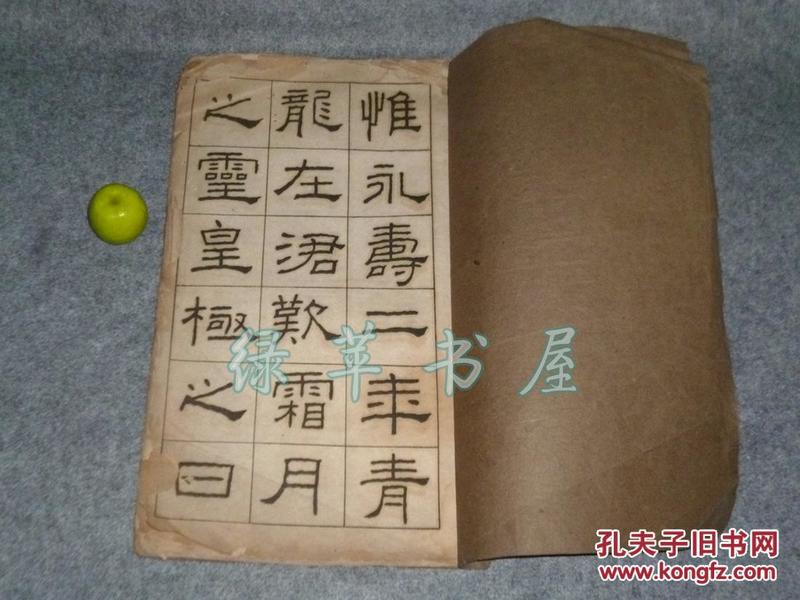 惟永壽二年青
龍在涒歎霜月
之靈皇極之日
绿苹书屋
孔夫子旧书网
www.kongfz.com